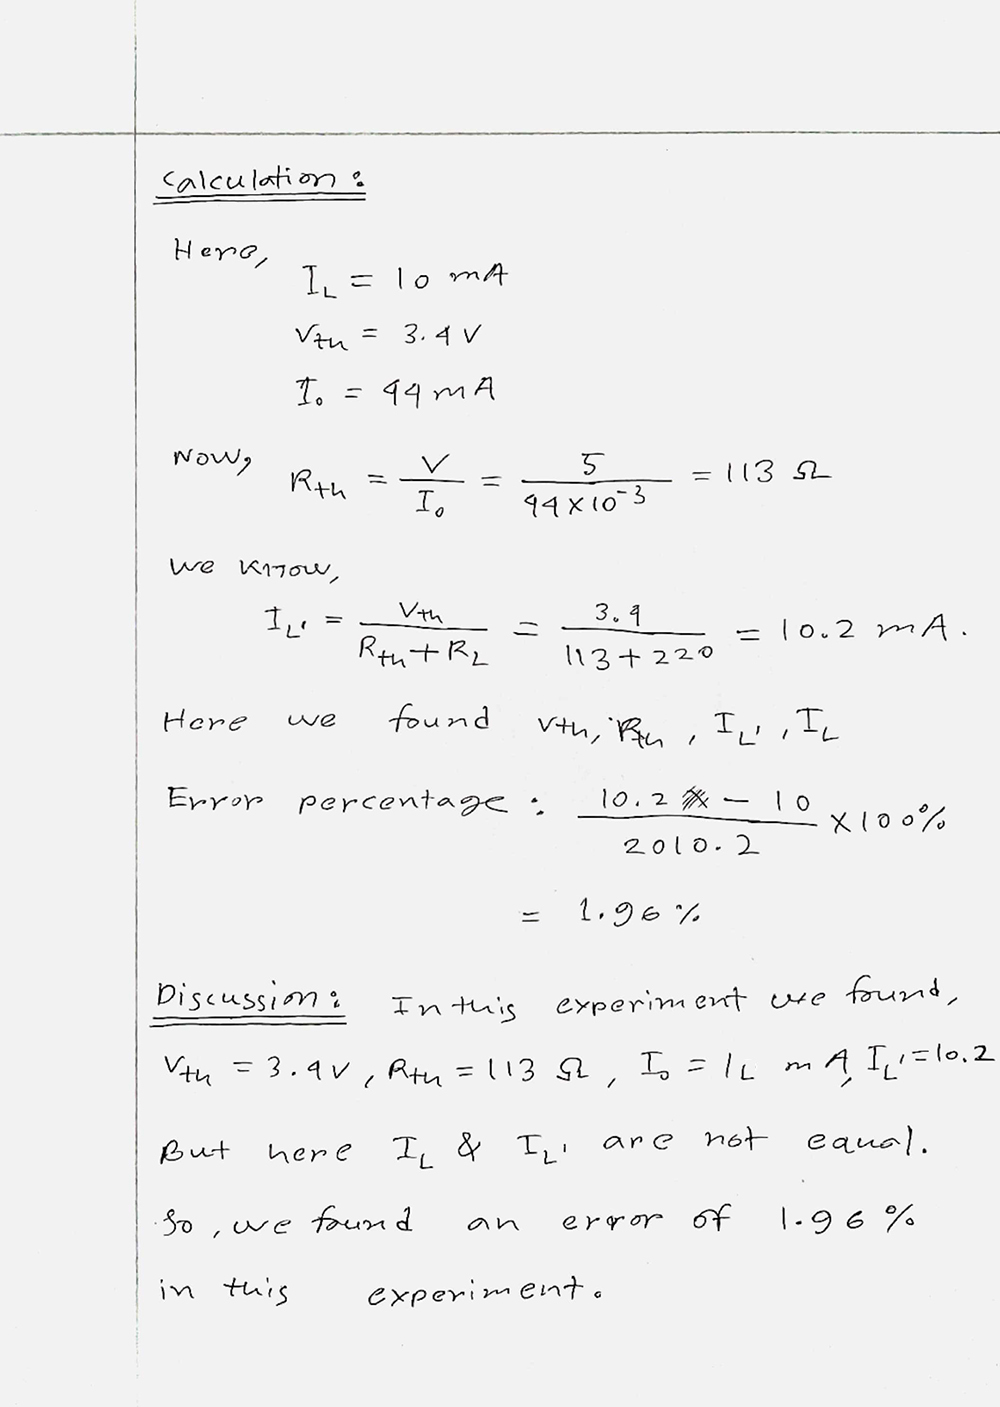 Calculation :
Here,
I_L = 10 mA
Vth = 3.4 V
I₀ = 44 mA
Now, Rth = V / I₀ = 5 / 44 × 10⁻³ = 113 Ω
We know,
I_L' = Vth / Rth + R_L = 3.4 / 113 + 220 = 10.2 mA.
Here we found Vth, Rth, I_L', I_L
Error percentage : 10.2 - 10 / 2010.2 × 100%
= 1.96 %
Discussion : In this experiment we found,
Vth = 3.4 V, Rth = 113 Ω, I₀ = I_L mA, I_L' = 10.2
But here I_L & I_L' are not equal.
So, we found an error of 1.96 %
in this experiment.